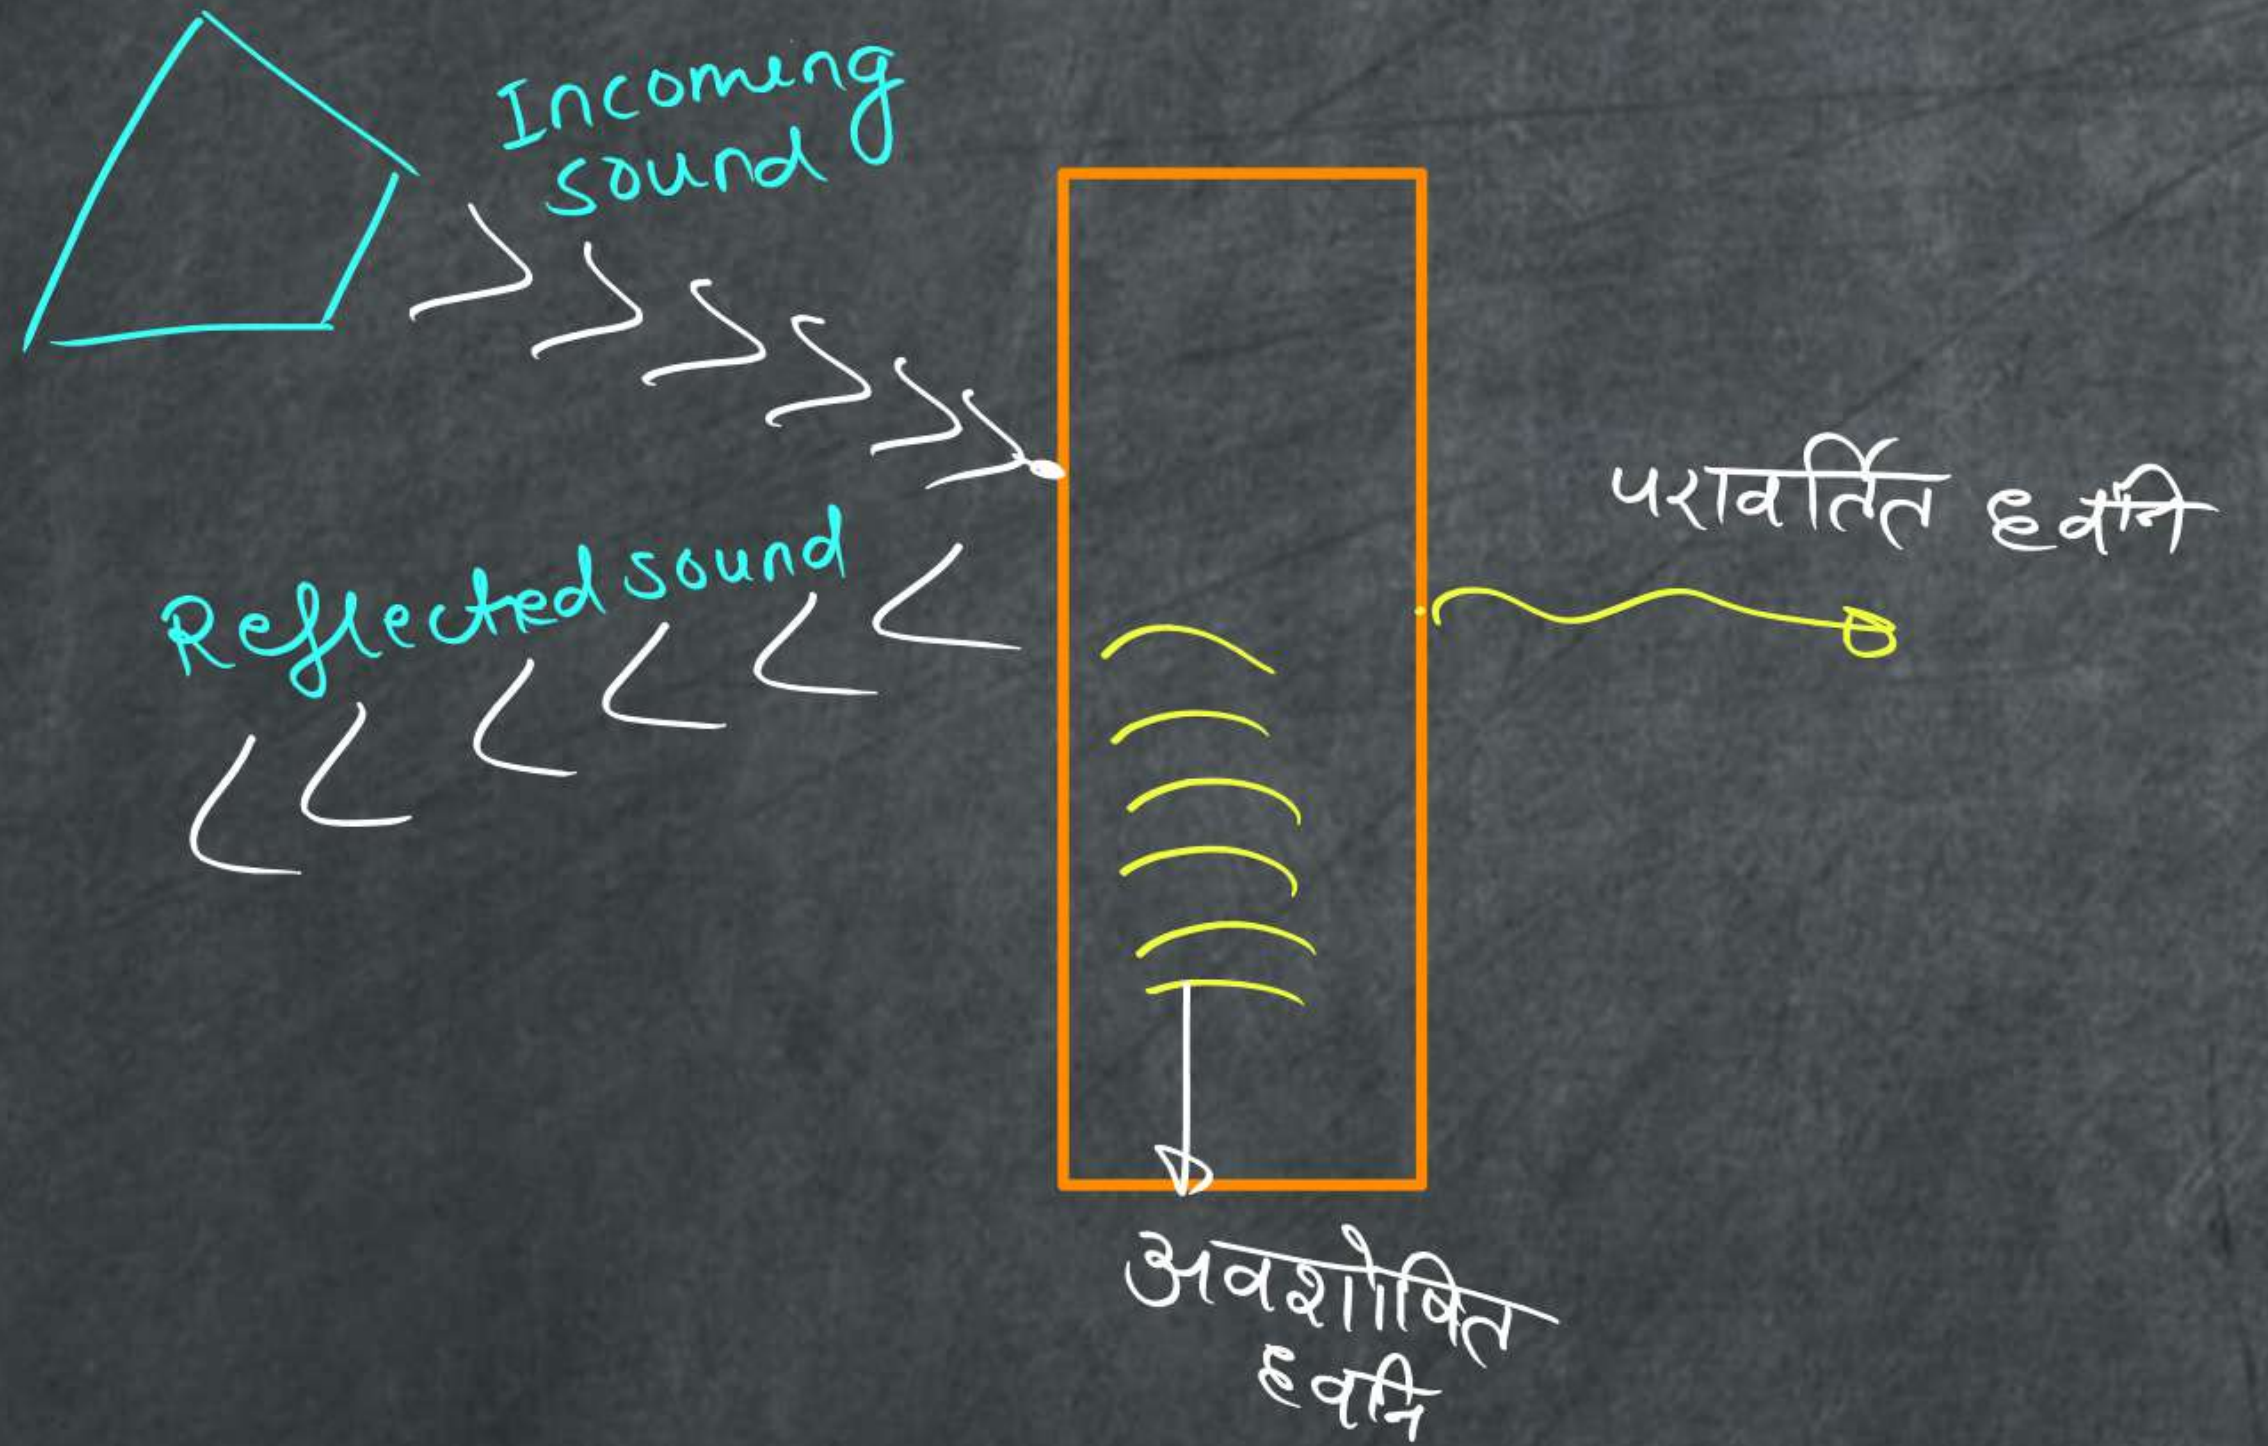 Incoming
sound
Reflected sound
परावर्तित ध्वनि
अवशोषित
ध्वनि